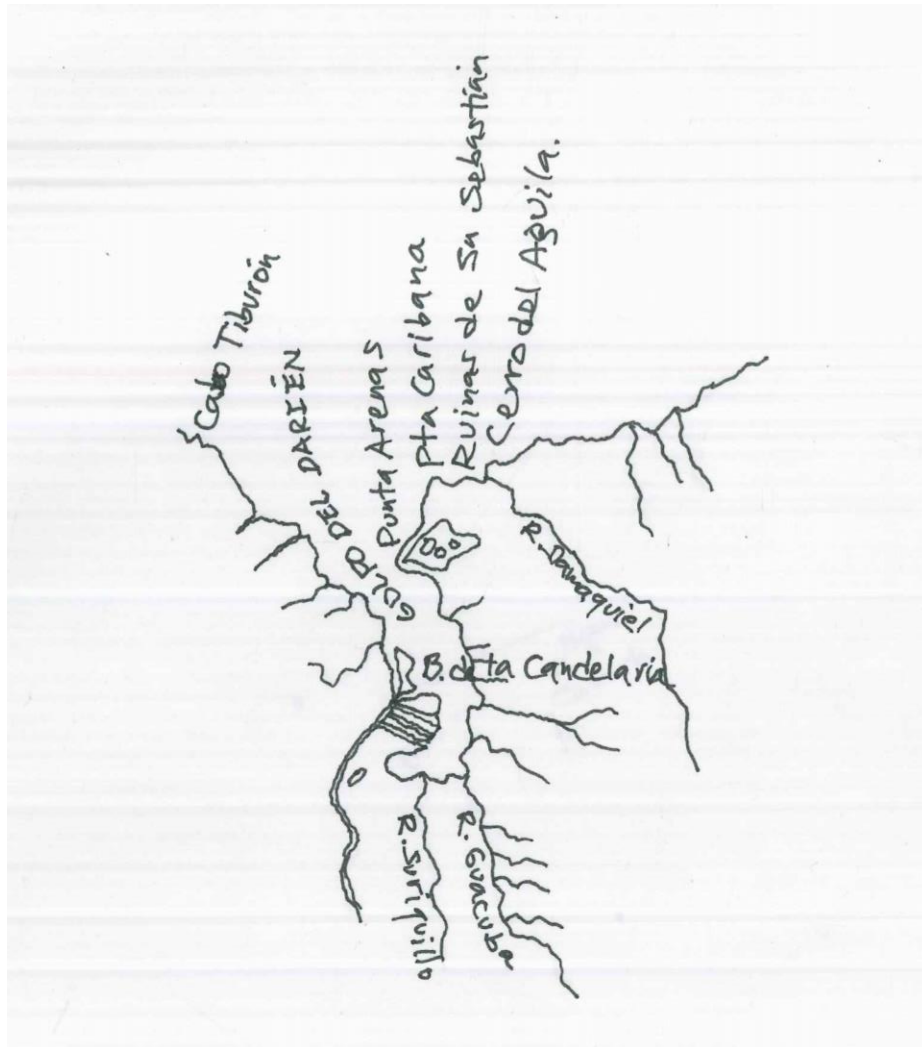 Cabo Tiburón
GOLFO DEL DARIÉN
Punta Arenas
Pta Caribana
Ruinas de Sn Sebastián
Cerro del Aguila.
R. Damaquiel
B. de la Candelaria
R. Suriquillo
R. Guacuba